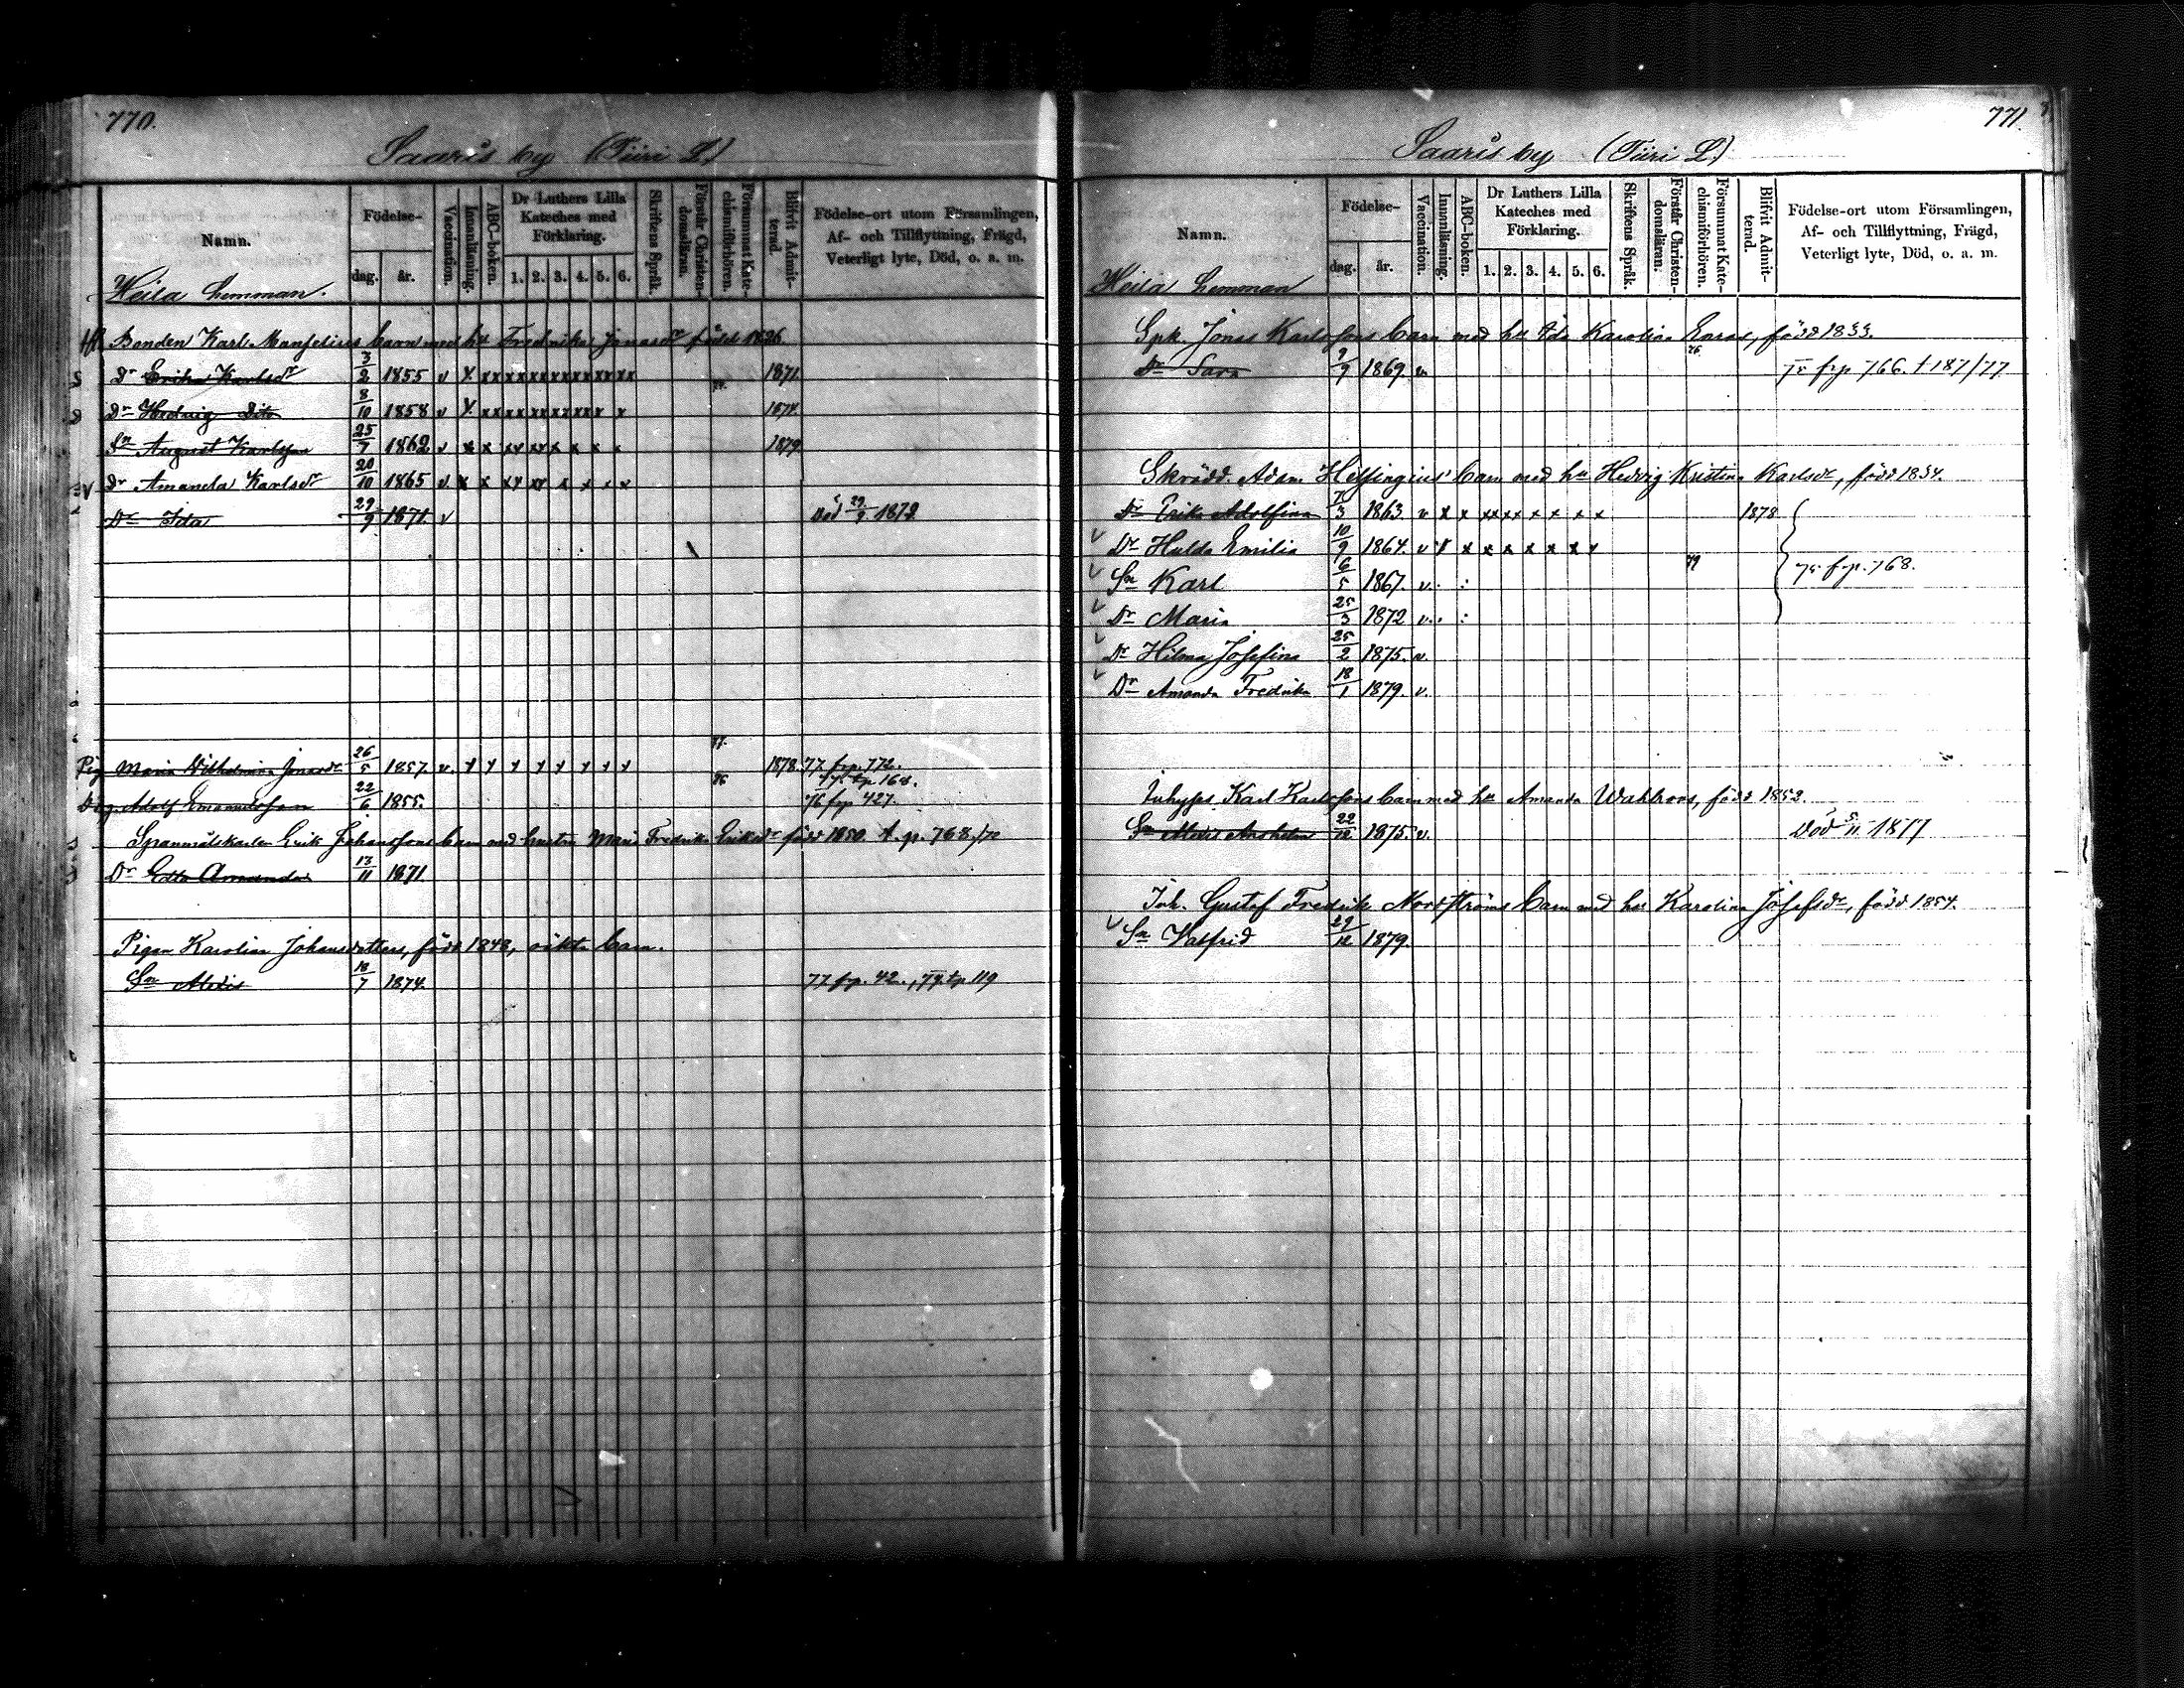 770.
Saaris by (Tiiri L)
Namn.
Födelse-
dag.
år.
Vaccination.
Innanläsning.
ABC-boken.
Dr Luthers Lilla
Kateches med
Förklaring.
1. 2. 3. 4. 5. 6.
Skriftens Språk.
Förstår Christen-
domsläran.
Försummat Kate-
chismiförhören.
Blifvit Admit-
terad.
Födelse-ort utom Församlingen,
Af- och Tillflyttning, Frägd,
Veterligt lyte, Död, o. a. m.
Heila hemman.
Bonden Karl barn med hu Fredrika Jonasdr född 1826.
Dr Erika Karlsdr 3/2 1855 v x x x x x x x x 1871.
Dr Hedvig Dito 8/10 1858 v x x x x x x x x 1874.
Sn August Karlsson 25/7 1862 v x x x x x x x x 1879
Dr Amanda Karlsdr 20/10 1865 v x x x x x x x x
Dr Ida 29/9 1871 v Död 29/9 1872
77.
Pig. Maria Wilhelmina Jonasdr 26/5 1857. v. x x x x x x x x 1878. 77. frp. 772.
tp. 168.
Drg. Adolf Emanuelsson 22/6 1855. 76 76 frp 427.
Spannmålskarlen Erik Johanssons barn med hustru Maria Fredrika Eriksdr född 1850. A. p. 768.
Dr Edla Amanda 13/11 1871
Pigan Karolina Johansdotters, född 1848, oäkta barn.
Sn Alexis 18/7 1874. 77 frp. 42., 79 tp 119
771.
Saaris by (Tiiri L)
Namn.
Födelse-
dag.
år.
Vaccination.
Innanläsning.
ABC-boken.
Dr Luthers Lilla
Kateches med
Förklaring.
1. 2. 3. 4. 5. 6.
Skriftens Språk.
Förstår Christen-
domsläran.
Försummat Kate-
chismiförhören.
Blifvit Admit-
terad.
Födelse-ort utom Församlingen,
Af- och Tillflyttning, Frägd,
Veterligt lyte, Död, o. a. m.
Heila hemman
Spk. Jonas Karlssons barn med hu Eda Karolina Enros, född 1833.
Dr Sara 9/9 1869. v. 76. 75 frp 766.
Skrädd. Adam Helsingius' barn med hu Hedvig Kristina Karlsdr, född 1834.
Dr Erika Adolfina 7/3 1863. v x x x x x x x x 1878
Dr Hulda Emilia 10/9 1864. v x x x x x x x x
79 75 frp. 768.
Sn Karl 6/5 1867. v.
Dr Maria 25/3 1872 v.
Dr Hilma Josefina 25/2 1875. v.
Dr Amanda Fredrika 18/1 1879. v.
Inhyses Karl Karlssons barn med hu Amanda Wahlroos, född 1852.
Sn Alexis 22/12 1875. v. Död 5/11 1877
Inh. Gustaf Fredrik Norrströms barn med hu Karolina Josefsdr, född 1854.
Sn Valfrid 29/12 1879.